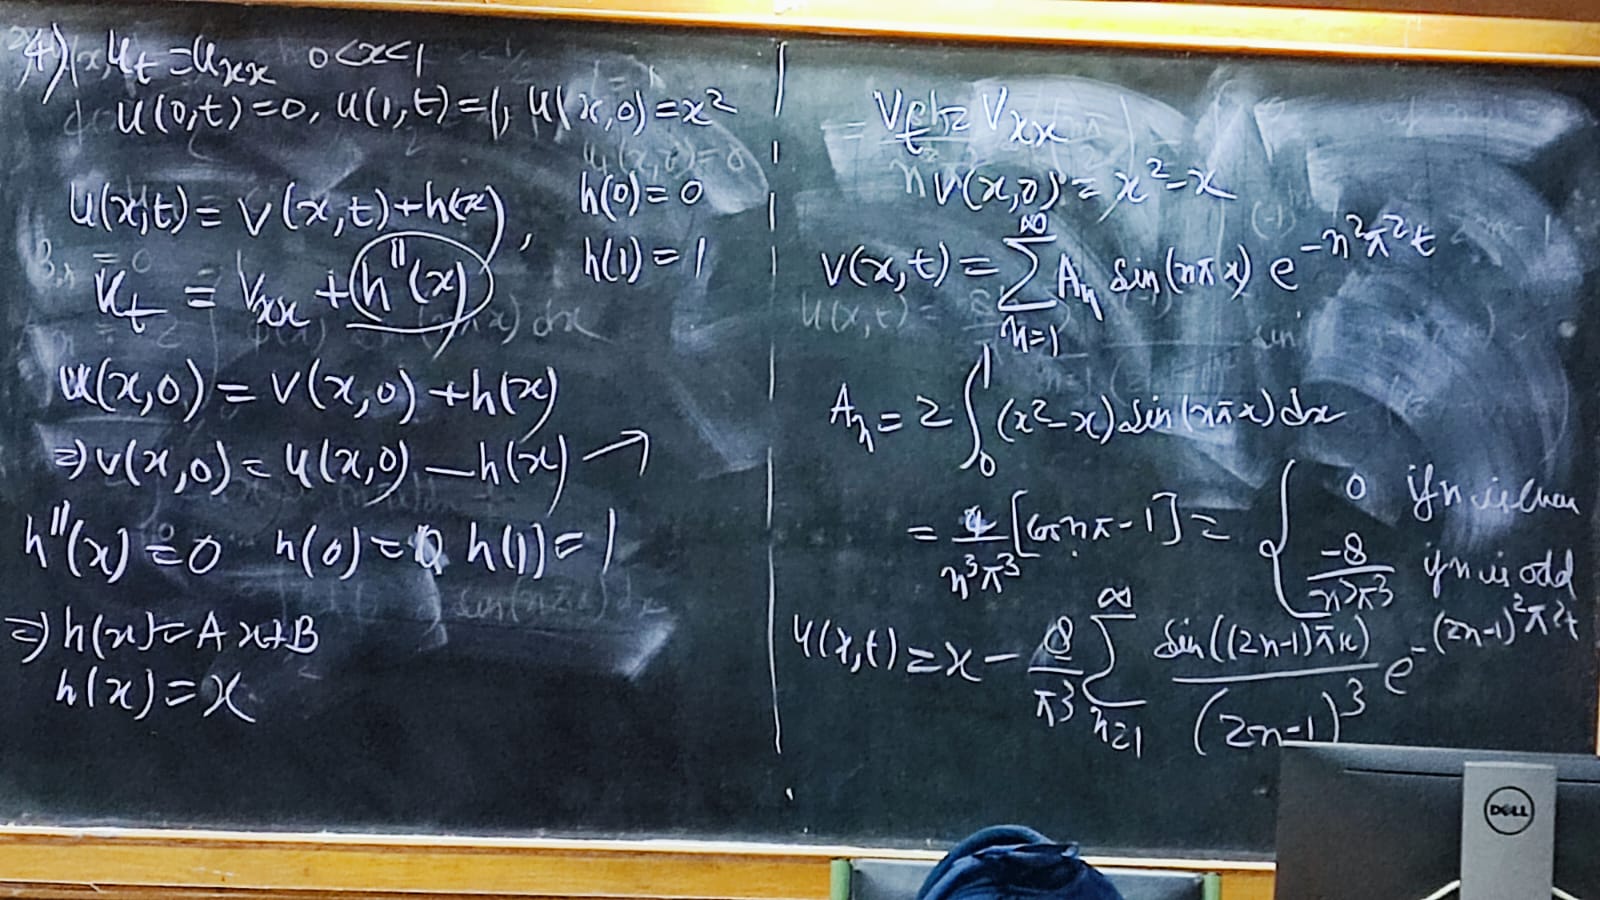 4) u_t = u_xx 0<x<1
u(0,t)=0, u(1,t)=1, u(x,0)=x²
u(x,t) = v(x,t)+h(x), h(0)=0
h(1)=1
v_t = v_xx + h''(x)
u(x,0) = v(x,0)+h(x)
⇒ v(x,0) = u(x,0) — h(x) →
h''(x) = 0 h(0)=0 h(1)=1
⇒ h(x) = Ax+B
h(x) = x
v_t = v_xx
v(x,0) = x²-x
v(x,t) = ∑_{n=1}^{∞} A_n sin(nπx) e^{-n²π²t}
A_n = 2 ∫_0^1 (x²-x) sin(nπx) dx
= 4/(n³π³) [cos nπ - 1] = { 0 if n is even
-8/(n³π³) if n is odd
u(x,t) = x - 8/π³ ∑_{n=1}^{∞} sin((2n-1)πx)/(2n-1)³ e^{-(2n-1)²π²t}
DELL